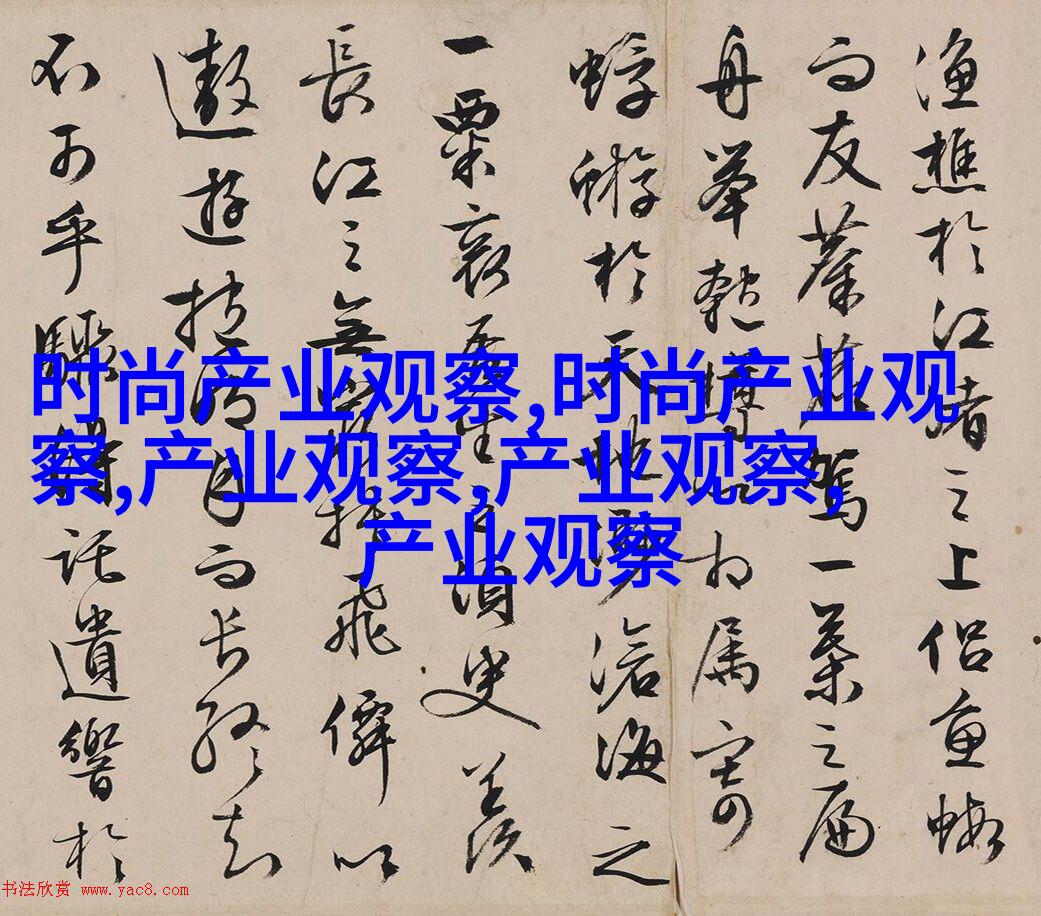 渔樵於江渚之上侣鱼蝦
而友麋鹿駕一葉之扁
舟舉匏樽以相属寄
蜉蝣於天地渺滄海之
一粟哀吾生之須臾羨
長江之無窮挾飛僊以
遨遊抱明月而长终知
不可乎驟得託遺響於
时尚产业观察,时尚产业观
察,产业观察,产业观察,
产业观察
书法欣赏 www.yac8.com